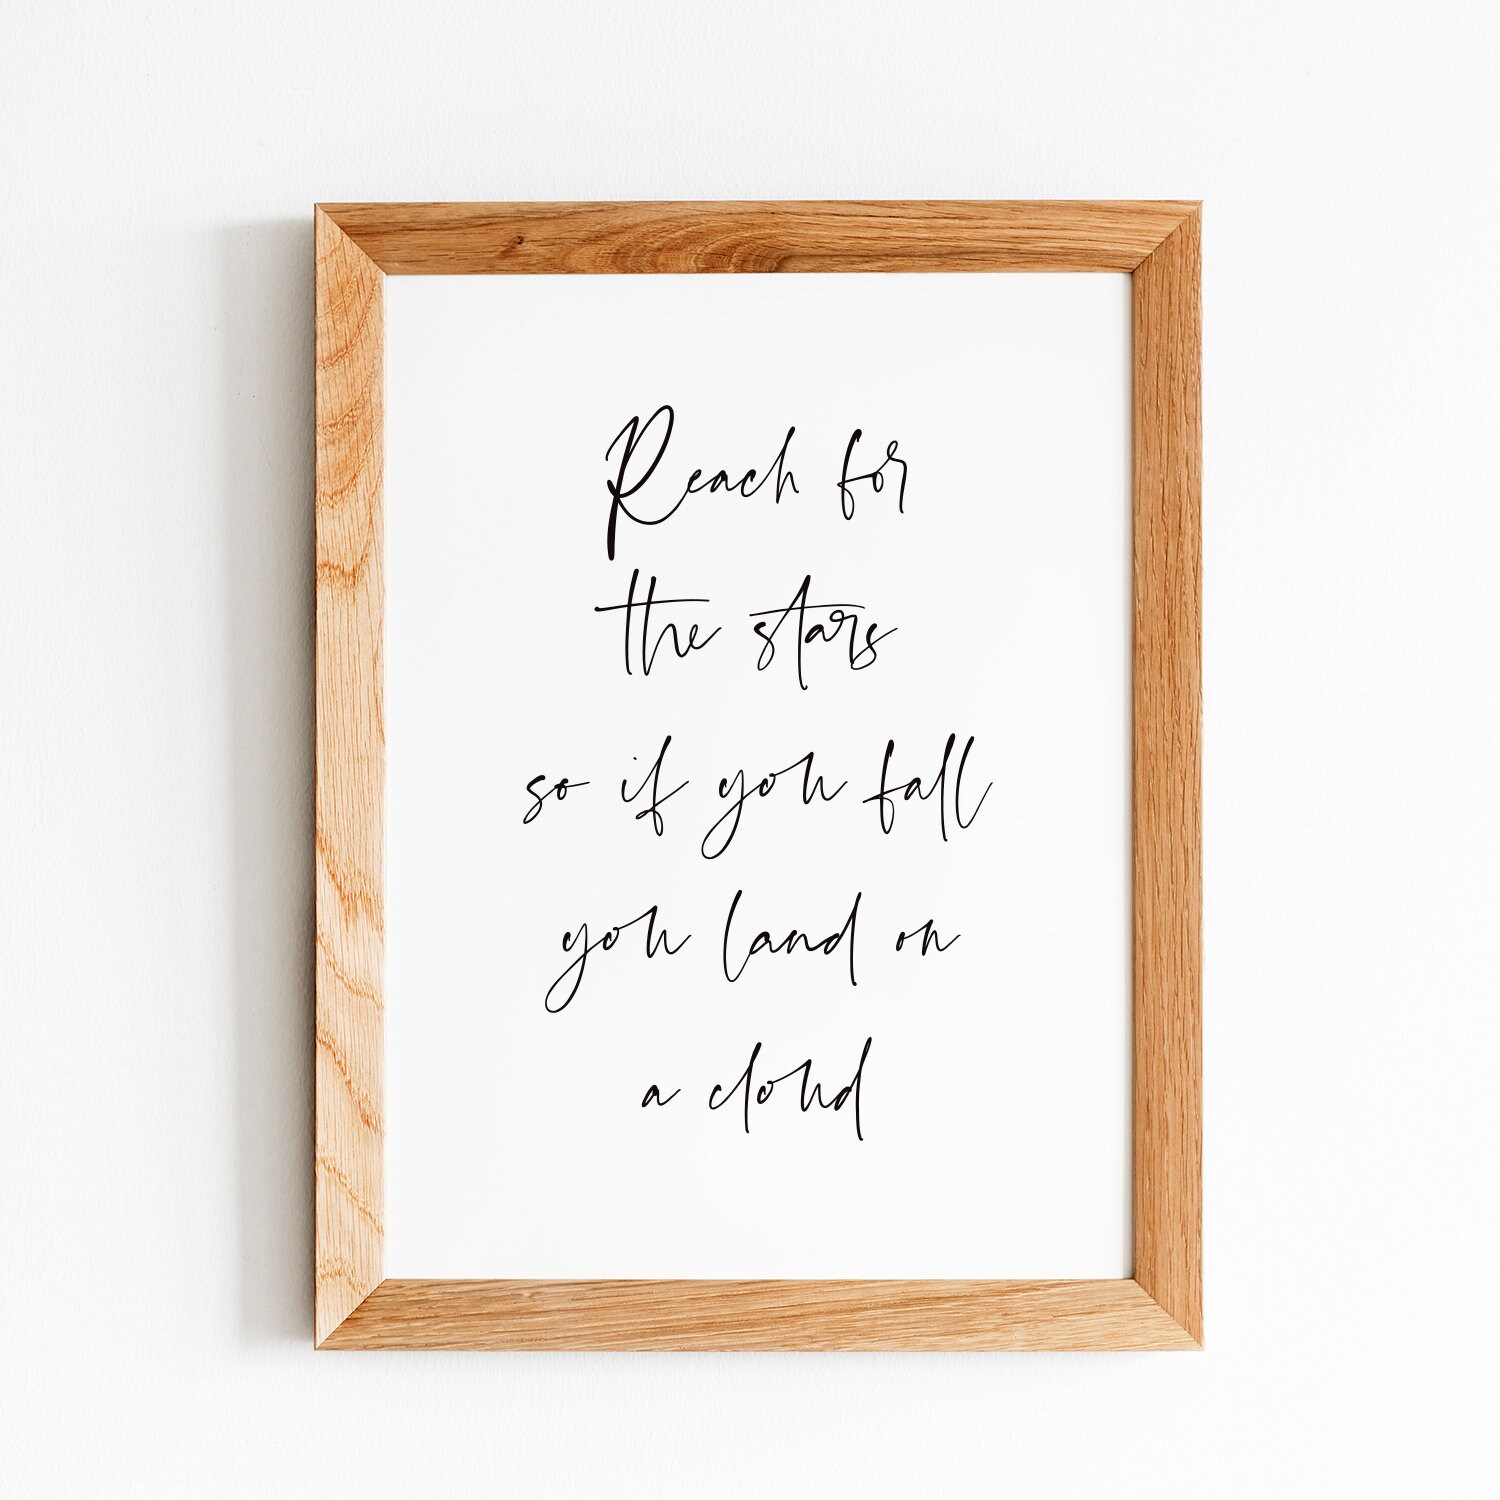 Reach for
the stars
so if you fall
you land on
a cloud